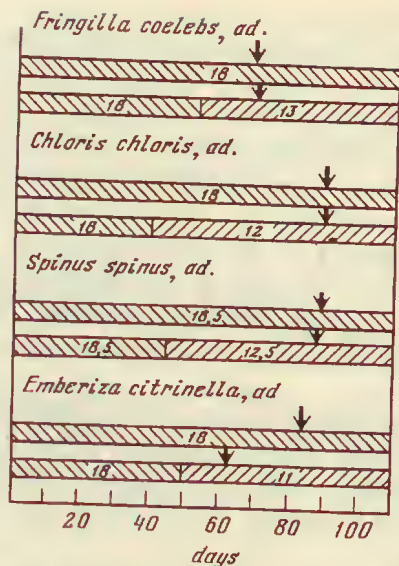 Fringilla coelebs, ad.
18
18 13
Chloris chloris, ad.
18
18 12
Spinus spinus, ad.
18,5
18,5 12,5
Emberiza citrinella, ad
18
18 11
20 40 60 80 100
days